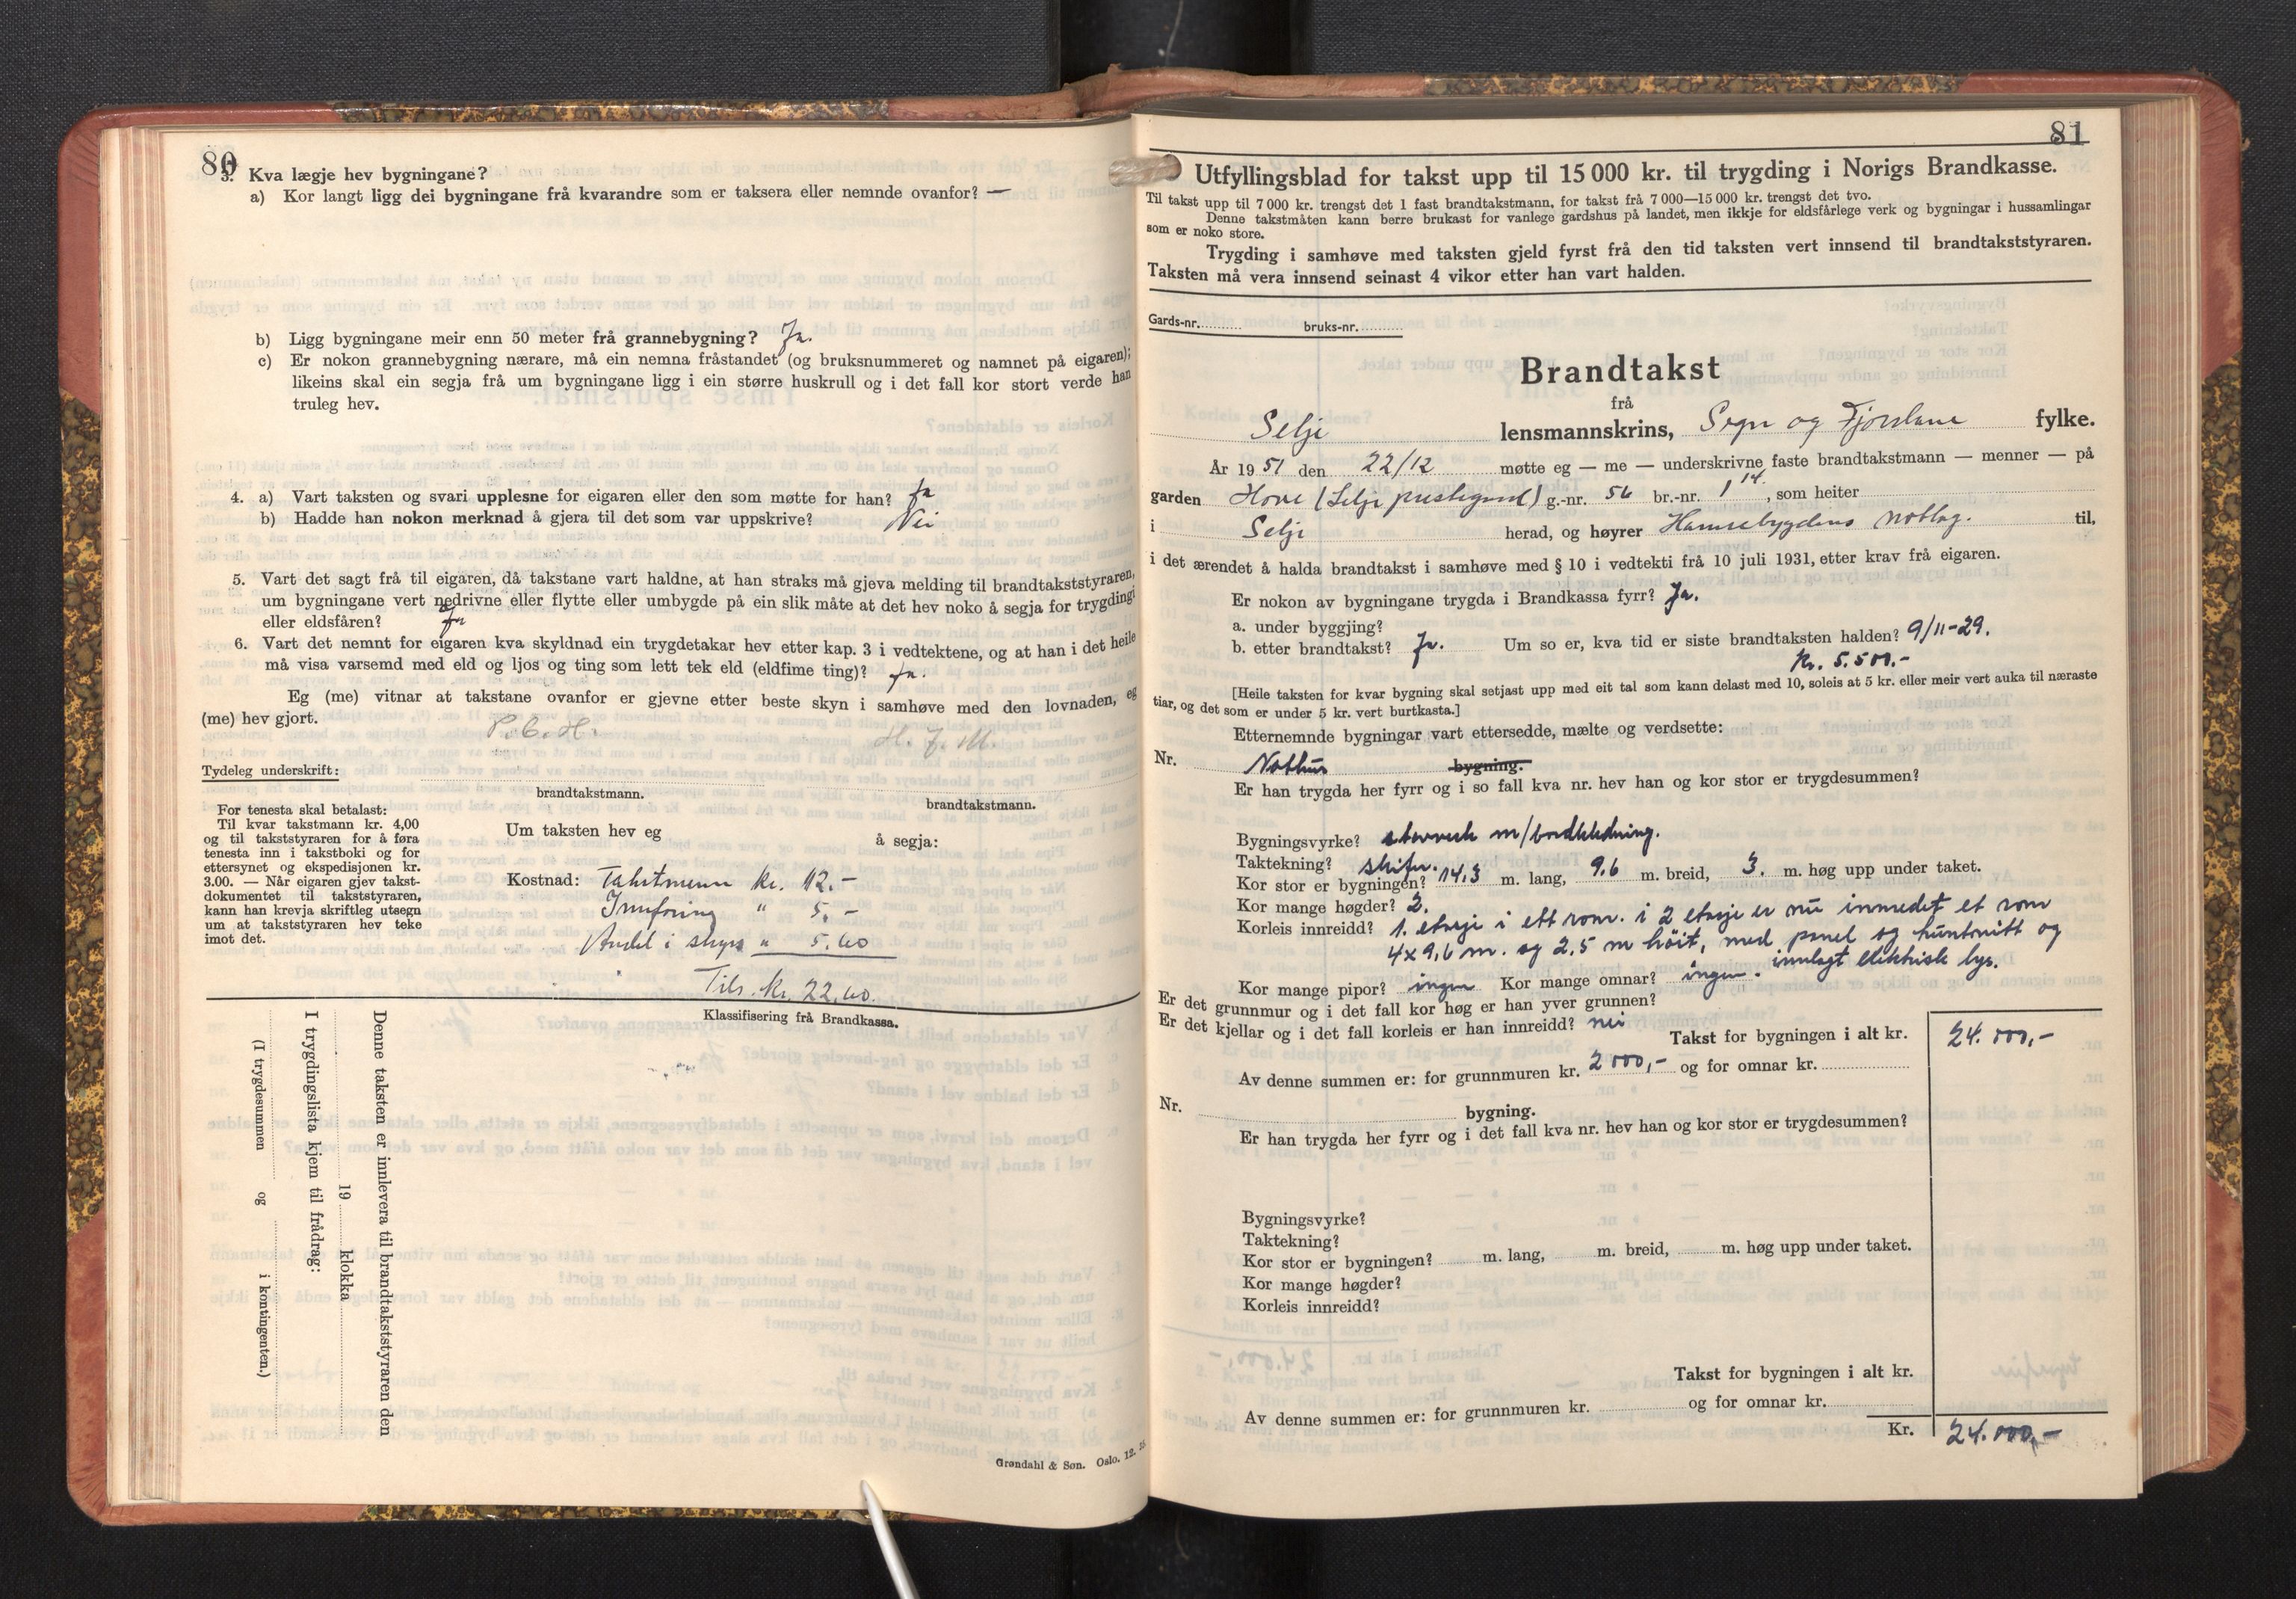 80
3. Kva lægje hev bygningane?
a) Kor langt ligg dei bygningane frå kvarandre som er taksera eller nemnde ovanfor? —
b) Ligg bygningane meir enn 50 meter frå grannebygning? Ja.
c) Er nokon grannebygning nærare, må ein nemna fråstandet (og bruksnummeret og namnet på eigaren);
likeins skal ein segja frå um bygningane ligg i ein større huskrull og i det fall kor stort verde han
truleg hev.
4. a) Vart taksten og svari upplesne for eigaren eller den som møtte for han? Ja
b) Hadde han nokon merknad å gjera til det som var uppskrive? Nei
5. Vart det sagt frå til eigaren, då takstane vart haldne, at han straks må gjeva melding til brandtakststyraren,
um bygningane vert nedrivne eller flytte eller umbygde på ein slik måte at det hev noko å segja for trygdingi
eller eldsfåren? Ja
6. Vart det nemnt for eigaren kva skyldnad ein trygdetakar hev etter kap. 3 i vedtektene, og at han i det heile
må visa varsemd med eld og ljos og ting som lett tek eld (eldfime ting)? Ja.
Eg (me) vitnar at takstane ovanfor er gjevne etter beste skyn i samhøve med den lovnaden, eg
(me) hev gjort.
P. C. H. H. J. M.
Tydeleg underskrift:
brandtakstmann. brandtakstmann.
For tenesta skal betalast:
Til kvar takstmann kr. 4,00
og til takststyraren for å føra
tenesta inn i takstboki og for
ettersynet og ekspedisjonen kr.
3.00. — Når eigaren gjev takst-
dokumentet til takststyraren,
kann han krevja skriftleg utsegn
um at takststyraren hev teke
imot det.
Um taksten hev eg å segja:
Kostnad: Takstmenn kr. 12.-
Innföring " 5.-
Andel i skyss " 5.60
Tils. kr. 22.60.
Klassifisering frå Brandkassa.
Denne taksten er innlevera til brandtakststyraren den
19 klokka
I trygdingslista kjem til frådrag:
(I trygdesummen og i kontingenten.)
Grøndahl & Søn. Oslo. 12.
81
Utfyllingsblad for takst upp til 15 000 kr. til trygding i Norigs Brandkasse.
Til takst upp til 7 000 kr. trengst det 1 fast brandtakstmann, for takst frå 7 000—15 000 kr. trengst det tvo.
Denne takstmåten kann berre brukast for vanlege gardshus på landet, men ikkje for eldsfårlege verk og bygningar i hussamlingar
som er noko store.
Trygding i samhøve med taksten gjeld fyrst frå den tid taksten vert innsend til brandtakststyraren.
Taksten må vera innsend seinast 4 vikor etter han vart halden.
Gards-nr. bruks-nr.
Brandtakst
frå
Selje lensmannskrins, Sogn og Fjordane fylke.
År 1951 den 22/12 møtte eg — me — underskrivne faste brandtakstmann — menner — på
garden Hove (Selje prestegard) g.-nr. 56 br.-nr. 1 14., som heiter
i Selje herad, og høyrer Hamsebygdens notlag. til,
i det ærendet å halda brandtakst i samhøve med § 10 i vedtekti frå 10 juli 1931, etter krav frå eigaren.
Er nokon av bygningane trygda i Brandkassa fyrr? Ja.
a. under byggjing?
b. etter brandtakst? Ja. Um so er, kva tid er siste brandtaksten halden? 9/11-29.
kr. 5.500.-
[Heile taksten for kvar bygning skal setjast upp med eit tal som kann delast med 10, soleis at 5 kr. eller meir vert auka til næraste
tiar, og det som er under 5 kr. vert burtkasta.]
Etternemnde bygningar vart ettersedde, mælte og verdsette:
Nr. Nothus bygning.
Er han trygda her fyrr og i so fall kva nr. hev han og kor stor er trygdesummen?
Bygningsvyrke? stavverk m/bordkledning.
Taktekning? skifer.
Kor stor er bygningen? 14,3 m. lang, 9,6 m. breid, 3. m. høg upp under taket.
Kor mange høgder? 2.
Korleis innreidd? 1. etasje i ett rom. i 2 etasje er nu innredet et rom
4x9,6 m. og 2,5 m höit, med panel og huntonitt og
innlagt elektrisk lys.
Kor mange pipor? ingen Kor mange omnar? ingen.
Er det grunnmur og i det fall kor høg er han yver grunnen?
Er det kjellar og i det fall korleis er han innreidd? nei
Takst for bygningen i alt kr. 24.000,-
Av denne summen er: for grunnmuren kr. 2000,- og for omnar kr.
Nr. bygning.
Er han trygda her fyrr og i det fall kva nr. hev han og kor stor er trygdesummen?
Bygningsvyrke?
Taktekning?
Kor stor er bygningen? m. lang, m. breid, m. høg upp under taket.
Kor mange høgder?
Korleis innreidd?
Takst for bygningen i alt kr.
Av denne summen er: for grunnmuren kr. og for omnar kr.
Kr. 24.000,-